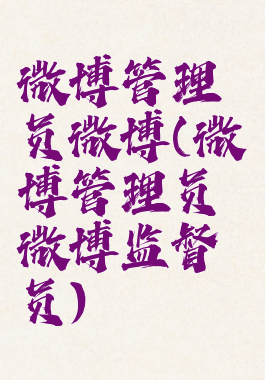 微博管理
员微博(微
博管理员
微博监督
员)